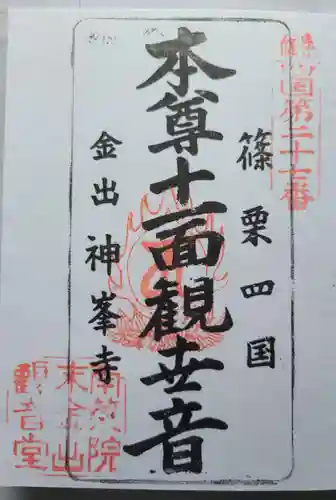 篠栗四国
本尊十一面観世音
金出 神峯寺
四国第二十七番
南蔵院
末金山
観音堂